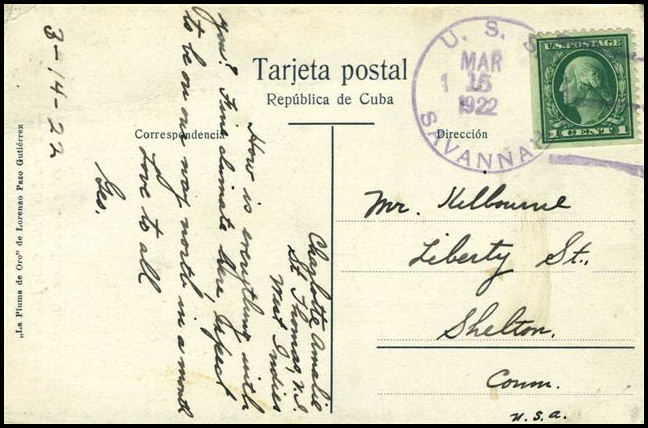 Tarjeta postal
República de Cuba
Correspondencia
Dirección
„La Pluma de Oro" de Lorenzo Pazo Gutiérrez
U. S. S.
SAVANNAH
MAR
15
1922
U.S. POSTAGE
1 CENT 1
3-14-22
Charlotte Amalie
St Thomas, V.I.
West Indies
How is everything with
you? Fine climate here, Expect
to be on our way north in a month
Love to all
Geo.
Mr. Kelbourne
Liberty St.,
Shelton,
Conn.
U.S.A.